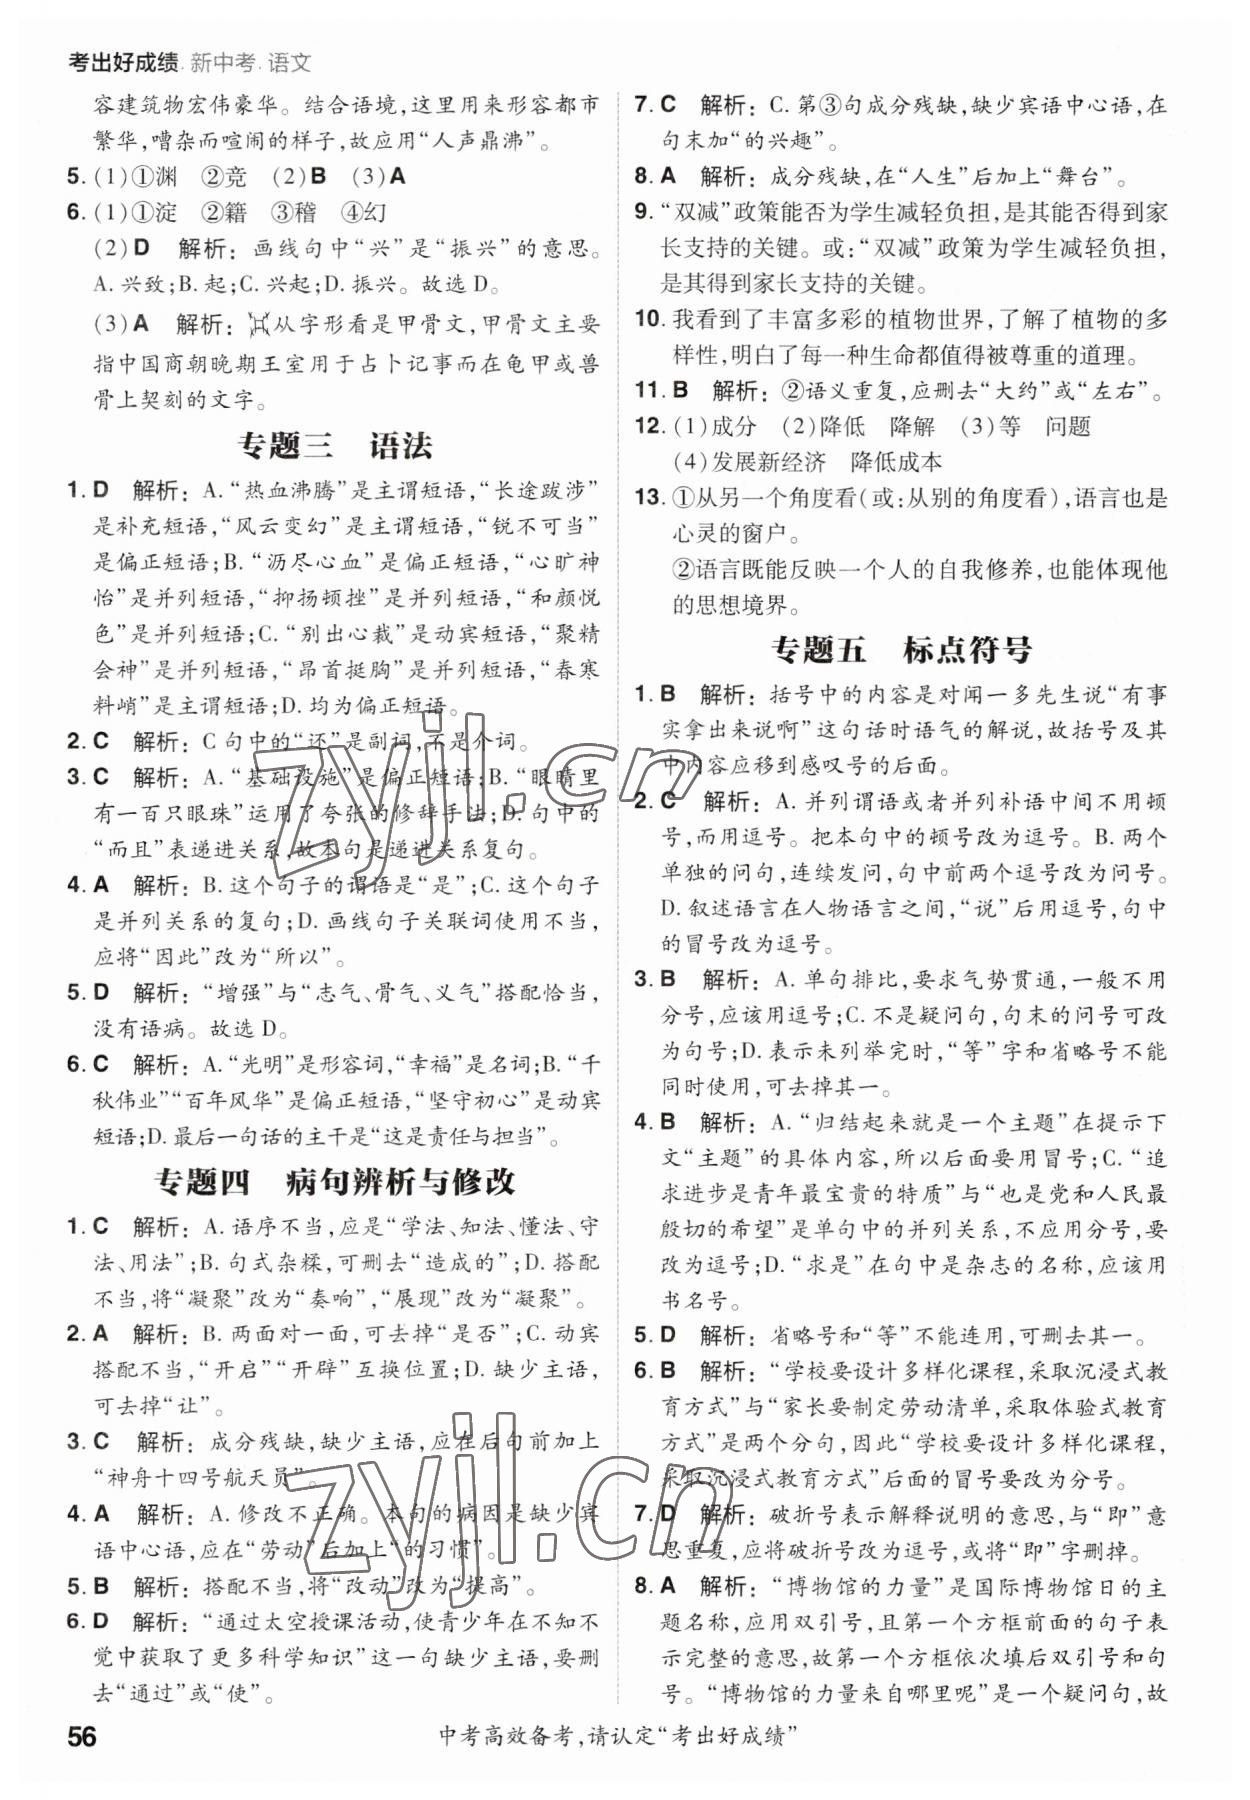 考出好成绩.新中考.语文
容建筑物宏伟豪华。结合语境,这里用来形容都市
繁华,嘈杂而喧闹的样子,故应用“人声鼎沸”。
5. (1)①渊　②竞　(2)B　(3)A
6. (1)①淀　②籍　③稽　④幻
(2)D　解析：画线句中“兴”是“振兴”的意思。
A. 兴致;B. 起;C. 兴起;D. 振兴。故选 D。
(3)A　解析：从字形看是甲骨文,甲骨文主要
指中国商朝晚期王室用于占卜记事而在龟甲或兽
骨上契刻的文字。
专题三　语法
1. D　解析：A.“热血沸腾”是主谓短语,“长途跋涉”
是补充短语,“风云变幻”是主谓短语,“锐不可当”
是偏正短语;B.“沥尽心血”是偏正短语,“心旷神
怡”是并列短语,“抑扬顿挫”是并列短语,“和颜悦
色”是并列短语;C.“别出心裁”是动宾短语,“聚精
会神”是并列短语,“昂首挺胸”是并列短语,“春寒
料峭”是主谓短语;D. 均为偏正短语。
2. C　解析：C 句中的“还”是副词,不是介词。
3. C　解析：A.“基础设施”是偏正短语;B.“眼睛里
有一百只眼珠”运用了夸张的修辞手法;D. 句中的
“而且”表递进关系,故本句是递进关系复句。
4. A　解析：B. 这个句子的谓语是“是”;C. 这个句子
是并列关系的复句;D. 画线句子关联词使用不当,
应将“因此”改为“所以”。
5. D　解析：“增强”与“志气、骨气、义气”搭配恰当,
没有语病。故选 D。
6. C　解析：A.“光明”是形容词,“幸福”是名词;B.“千
秋伟业”“百年风华”是偏正短语,“坚守初心”是动宾
短语;D. 最后一句话的主干是“这是责任与担当”。
专题四　病句辨析与修改
1. C　解析：A. 语序不当,应是“学法、知法、懂法、守
法、用法”;B. 句式杂糅,可删去“造成的”;D. 搭配
不当,将“凝聚”改为“奏响”,“展现”改为“凝聚”。
2. A　解析：B. 两面对一面,可去掉“是否”;C. 动宾
搭配不当,“开启”“开辟”互换位置;D. 缺少主语,
可去掉“让”。
3. C　解析：成分残缺,缺少主语,应在后句前加上
“神舟十四号航天员”。
4. A　解析：A. 修改不正确。本句的病因是缺少宾
语中心语,应在“劳动”后加上“的习惯”。
5. B　解析：搭配不当,将“改动”改为“提高”。
6. D　解析：“通过太空授课活动,使青少年在不知不
觉中获取了更多科学知识”这一句缺少主语,要删
去“通过”或“使”。
7. C　解析：C. 第③句成分残缺,缺少宾语中心语,在
句末加“的兴趣”。
8. A　解析：成分残缺,在“人生”后加上“舞台”。
9. “双减”政策能否为学生减轻负担,是其能否得到家
长支持的关键。或:“双减”政策为学生减轻负担,
是其得到家长支持的关键。
10. 我看到了丰富多彩的植物世界,了解了植物的多
样性,明白了每一种生命都值得被尊重的道理。
11. B　解析：②语义重复,应删去“大约”或“左右”。
12. (1)成分　(2)降低　降解　(3)等　问题
(4)发展新经济　降低成本
13. ①从另一个角度看(或:从别的角度看),语言也是
心灵的窗户。
②语言既能反映一个人的自我修养,也能体现他
的思想境界。
专题五　标点符号
1. B　解析：括号中的内容是对闻一多先生说“有事
实拿出来说啊”这句话时语气的解说,故括号及其
中内容应移到感叹号的后面。
2. C　解析：A. 并列谓语或者并列补语中间不用顿
号,而用逗号。把本句中的顿号改为逗号。B. 两个
单独的问句,连续发问,句中前两个逗号改为问号。
D. 叙述语言在人物语言之间,“说”后用逗号,句中
的冒号改为逗号。
3. B　解析：A. 单句排比,要求气势贯通,一般不用
分号,应该用逗号;C. 不是疑问句,句末的问号可改
为句号;D. 表示未列举完时,“等”字和省略号不能
同时使用,可去掉其一。
4. B　解析：A.“归结起来就是一个主题”在提示下
文“主题”的具体内容,所以后面要用冒号;C.“追
求进步是青年最宝贵的特质”与“也是党和人民最
殷切的希望”是单句中的并列关系,不应用分号,要
改为逗号;D.“求是”在句中是杂志的名称,应该用
书名号。
5. D　解析：省略号和“等”不能连用,可删去其一。
6. B　解析：“学校要设计多样化课程,采取沉浸式教
育方式”与“家长要制定劳动清单,采取体验式教育
方式”是两个分句,因此“学校要设计多样化课程,
采取沉浸式教育方式”后面的冒号要改为分号。
7. D　解析：破折号表示解释说明的意思,与“即”意
思重复,应将破折号改为逗号,或将“即”字删掉。
8. A　解析：“博物馆的力量”是国际博物馆日的主
题名称,应用双引号,且第一个方框前面的句子表
示完整的意思,故第一个方框依次填后双引号和句
号。“博物馆的力量来自哪里呢”是一个疑问句,故
56
中考高效备考,请认定“考出好成绩”
zyjl.cn
zyjl.cn